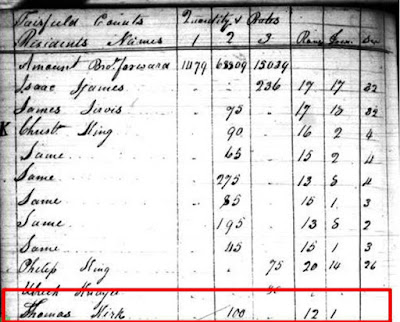 Fairfield County Quantity & Rates
Residents Names 1 2 3 Range Town. Sec
Amount Bro. forward 1479 68309 15039
Isaac James 236 17 17 32
James Javis 75 17 15 32
K Christ King 90 16 2 4
Same 65 15 2 4
Same 275 13 8 4
Same 85 15 1 3
Same 195 13 8 2
Same 45 15 1 3
Philip King 75 20 14 26
Thomas Kirk 100 12 1